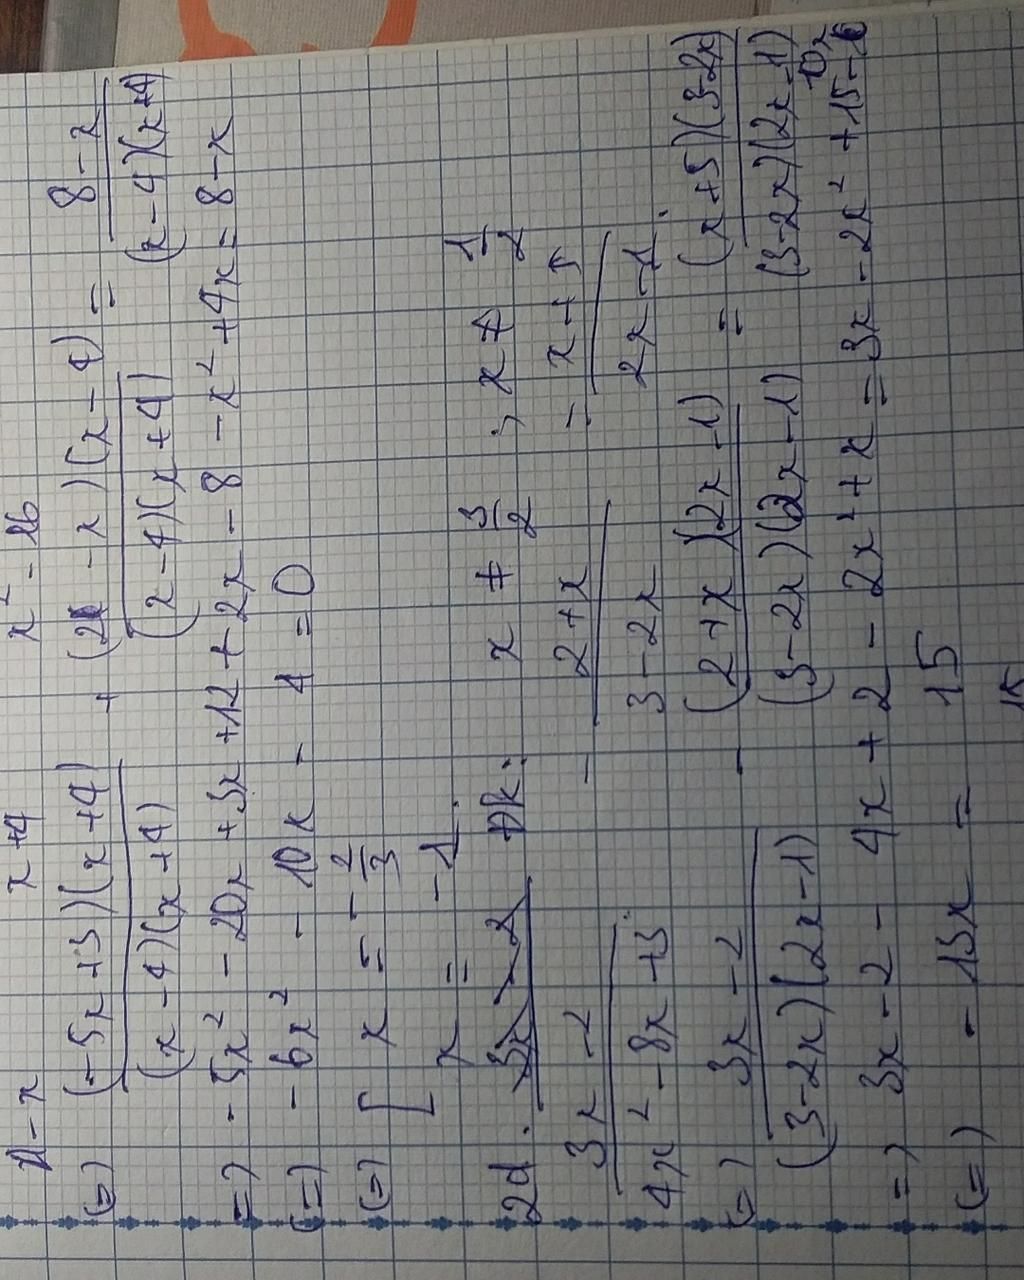 4 - x x+4 x² - 16
(=) (-5x+3)(x+4) / (x-4)(x+4) + (2 - x)(x-4) / (x-4)(x+4) = 8 - x / (x-4)(x+4)
=) -5x² - 20x + 3x + 12 + 2x - 8 - x² + 4x = 8 - x
(=) -6x² - 10x - 4 = 0
(=) [ x = -2/3
x = -1.
2d. ĐK: x ≠ 3/2 ; x ≠ 1/2
3x - 2 / 4x² - 8x + 3 - 2+x / 3-2x = x+5 / 2x-1.
(=) 3x - 2 / (3-2x)(2x-1) - (2+x)(2x-1) / (3-2x)(2x-1) = (x+5)(3-2x) / (3-2x)(2x-1)
=) 3x - 2 - 4x + 2 - 2x² + x = 3x - 2x² + 15 - 10x
(=) - 13x = 15
15